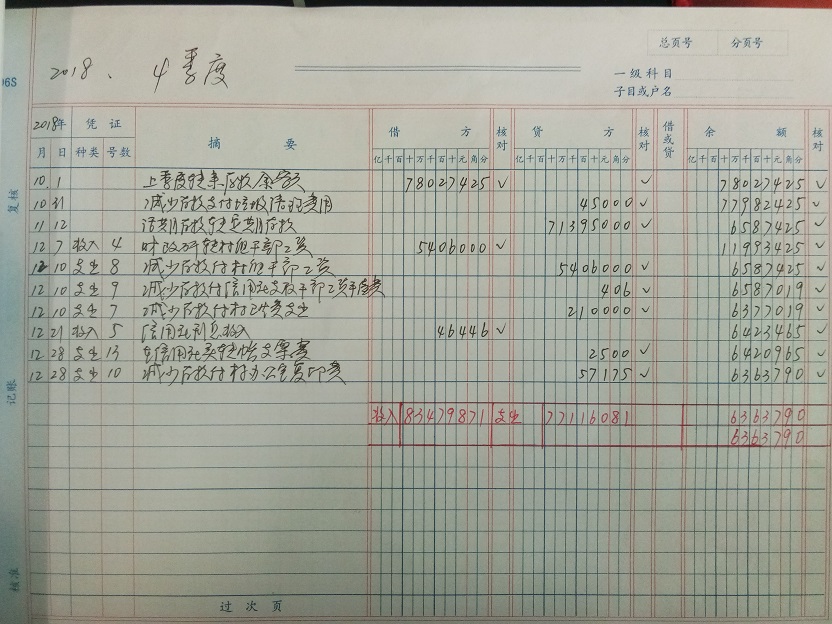 96S
总页号 分页号
2018、4季度
一级科目
子目或户名
2018年 凭证 摘要 借方 核对 贷方 核对 借或贷 余额 核对
月 日 种类 号数 亿千百十万千百十元角分 亿千百十万千百十元角分 亿千百十万千百十元角分
10 1 上季度转来存款余额 78027425 ✓ ✓ 78027425 ✓
10 31 减少存款支付垃圾清理费用 45000 ✓ 77982425 ✓
11 12 活期存款转定期存款 71395000 ✓ 6587425 ✓
12 7 收入 4 财政所转村组干部工资 5406000 ✓ 11993425 ✓
12 10 支出 8 减少存款付村组干部工资 5406000 ✓ 6587425 ✓
12 10 支出 9 减少存款付信用社支取干部工资手续费 406 ✓ 6587019 ✓
12 10 支出 7 减少存款付村办公费支出 210000 ✓ 6377019 ✓
12 21 收入 5 信用社利息收入 46446 ✓ 6423465 ✓
12 28 支出 13 信用社买转帐支票费 2500 ✓ 6420965 ✓
12 28 支出 10 减少存款付村办公室复印费 57175 ✓ 6363790 ✓
收入 83479871 支出 77116081 6363790
6363790
过次页
复核
记账
核准